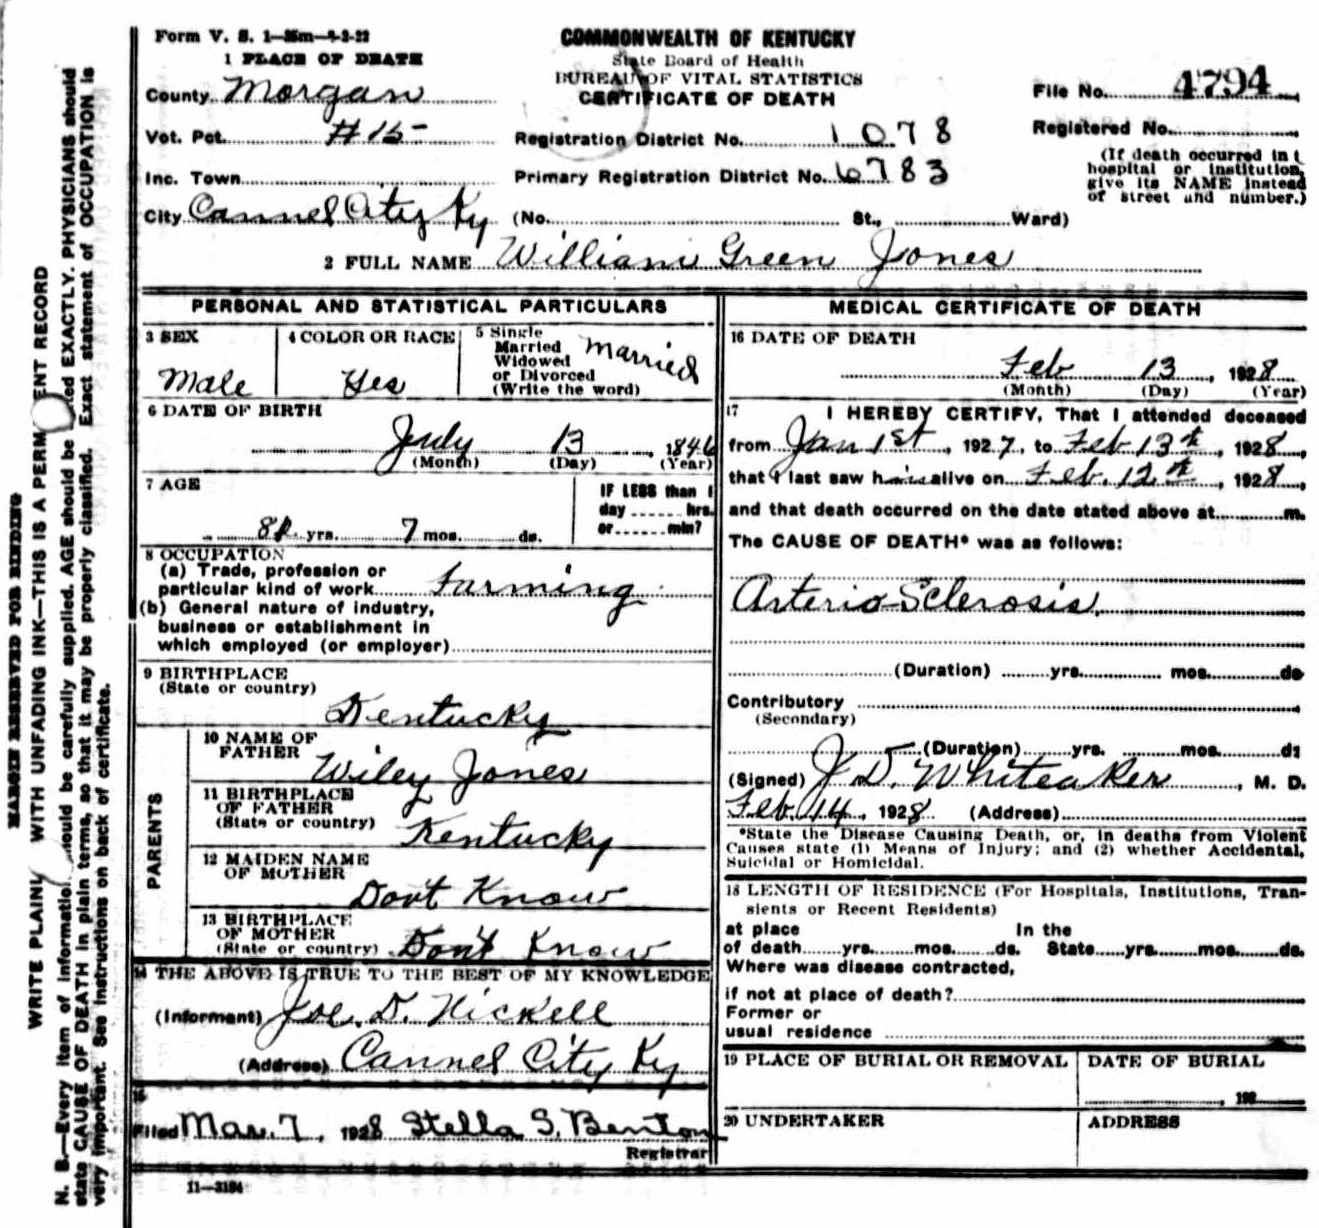 Form V. S. 1—35m—9-2-22
COMMONWEALTH OF KENTUCKY
State Board of Health
BUREAU OF VITAL STATISTICS
CERTIFICATE OF DEATH
1 PLACE OF DEATH
County Morgan
Vot. Pct. #15
Inc. Town
City Cannel City Ky (No. St., Ward)
Registration District No. 1078
Primary Registration District No. 6783
File No. 4794
Registered No.
(If death occurred in
hospital or institution,
give its NAME instead
of street and number.)
2 FULL NAME William Green Jones
PERSONAL AND STATISTICAL PARTICULARS
3 SEX
Male
4 COLOR OR RACE
Yes
5 Single
Married
Widowed
or Divorced
(Write the word)
Married
6 DATE OF BIRTH
July 13, 1846
(Month) (Day) (Year)
7 AGE
yrs. 7 mos. ds.
IF LESS than 1
day ...... hrs.
or ...... min?
8 OCCUPATION
(a) Trade, profession or
particular kind of work Farming
(b) General nature of industry,
business or establishment in
which employed (or employer)
9 BIRTHPLACE
(State or country)
Kentucky
PARENTS
10 NAME OF
FATHER
Wiley Jones
11 BIRTHPLACE
OF FATHER
(State or country)
Kentucky
12 MAIDEN NAME
OF MOTHER
Dont Know
13 BIRTHPLACE
OF MOTHER
(State or country) Don't Know
14 THE ABOVE IS TRUE TO THE BEST OF MY KNOWLEDGE
(Informant) Joe. D. Nickell
(Address) Cannel City Ky
15
Filed Mar. 7, 1928 Stella S. Benton
Registrar
11—3184
MEDICAL CERTIFICATE OF DEATH
16 DATE OF DEATH
Feb 13, 1928
(Month) (Day) (Year)
17 I HEREBY CERTIFY, That I attended deceased
from Jan 1st, 1927, to Feb 13th, 1928,
that I last saw him alive on Feb. 12th, 1928,
and that death occurred on the date stated above at m.
The CAUSE OF DEATH* was as follows:
Arterio-Sclerosis.
(Duration) yrs. mos. ds
Contributory
(Secondary)
(Duration) yrs. mos. ds
(Signed) J. D. Whiteaker, M. D.
Feb. 14, 1928 (Address)
*State the Disease Causing Death, or, in deaths from Violent
Causes state (1) Means of Injury; and (2) whether Accidental,
Suicidal or Homicidal.
18 LENGTH OF RESIDENCE (For Hospitals, Institutions, Tran-
sients or Recent Residents)
at place In the
of death yrs. mos. ds. State yrs. mos. ds.
Where was disease contracted,
if not at place of death?
Former or
usual residence
19 PLACE OF BURIAL OR REMOVAL
DATE OF BURIAL
, 192
20 UNDERTAKER
ADDRESS
MARGIN RESERVED FOR BINDING
WRITE PLAINL WITH UNFADING INK—THIS IS A PERM ENT RECORD
N. B.—Every item of informatio should be carefully supplied. AGE should be ted EXACTLY. PHYSICIANS should
state CAUSE OF DEATH in plain terms, so that it may be properly classified. Exact statement of OCCUPATION is
very important. See instructions on back of certificate.